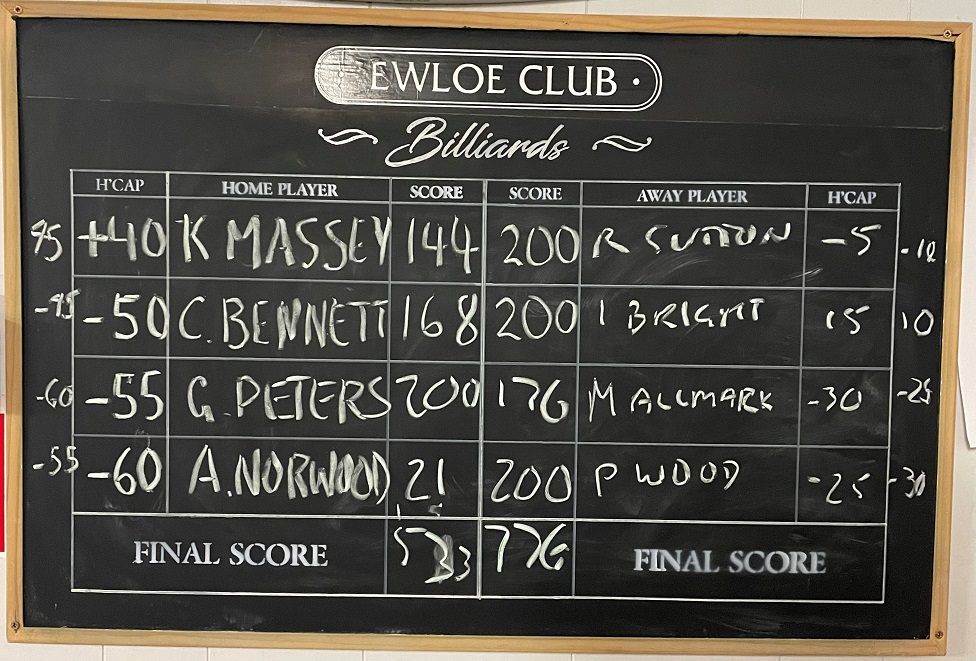 EWLOE CLUB
Billiards
H'CAP HOME PLAYER SCORE SCORE AWAY PLAYER H'CAP
+40 K MASSEY 144 200 R SUTTON -5 -10
-45 -50 C. BENNETT 168 200 I BRIGHT 15 10
-60 -55 G. PETERS 200 176 M ALLMARK -30 -25
-55 -60 A. NORWOOD 21 200 P WOOD -25 -30
FINAL SCORE 533 776 FINAL SCORE